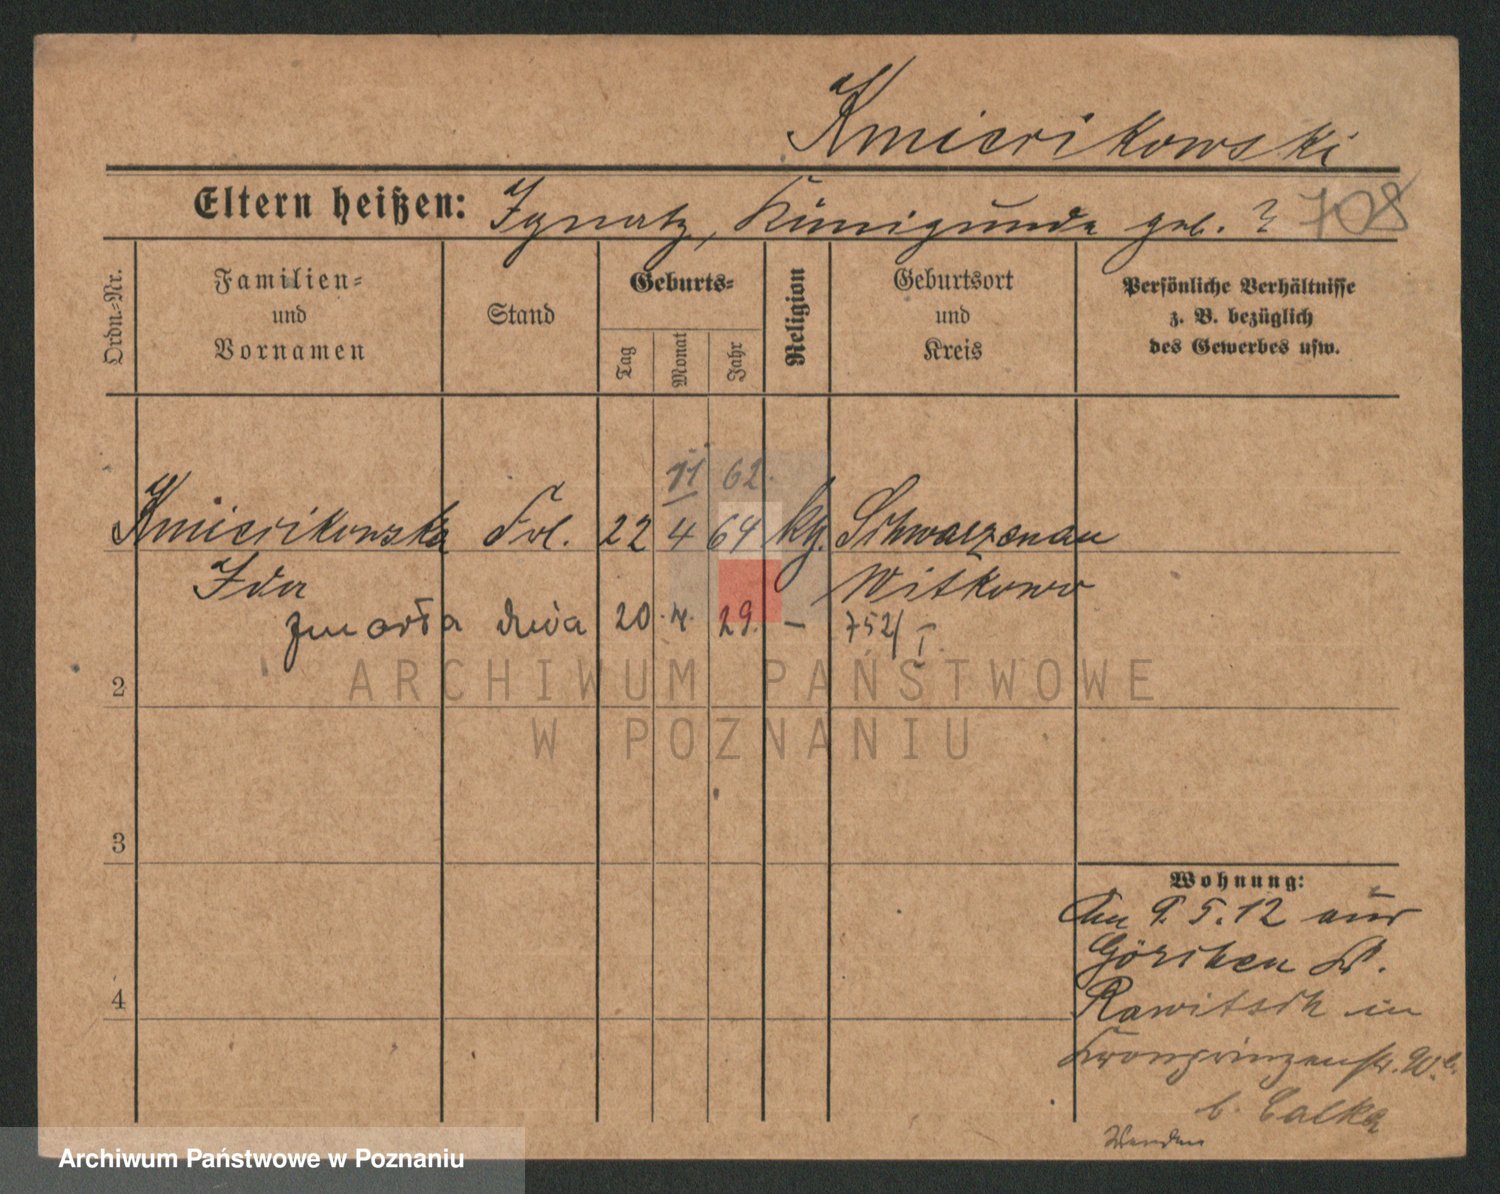 Kmiecikowski
Eltern heißen: Ignatz, Kunigunde geb. ? 708
Ordn.-Nr.
Familien-
und
Vornamen
Stand
Geburts-
Tag
Monat
Jahr
Religion
Geburtsort
und
Kreis
Persönliche Verhältnisse
z. B. bezüglich
des Gewerbes usw.
11 62.
Kmiecikowska Frl. 22 4 64 kg. Schwarzenau
Ida Witkowo
zmarła dnia 20. 4. 29. – 752/I.
2
3
4
Wohnung:
Am 9.5.12 aus
Görchen Kr.
Rawitsch in
Kronprinzenstr.
b. Calka
Wenden
ARCHIWUM PAŃSTWOWE
W POZNANIU
Archiwum Państwowe w Poznaniu